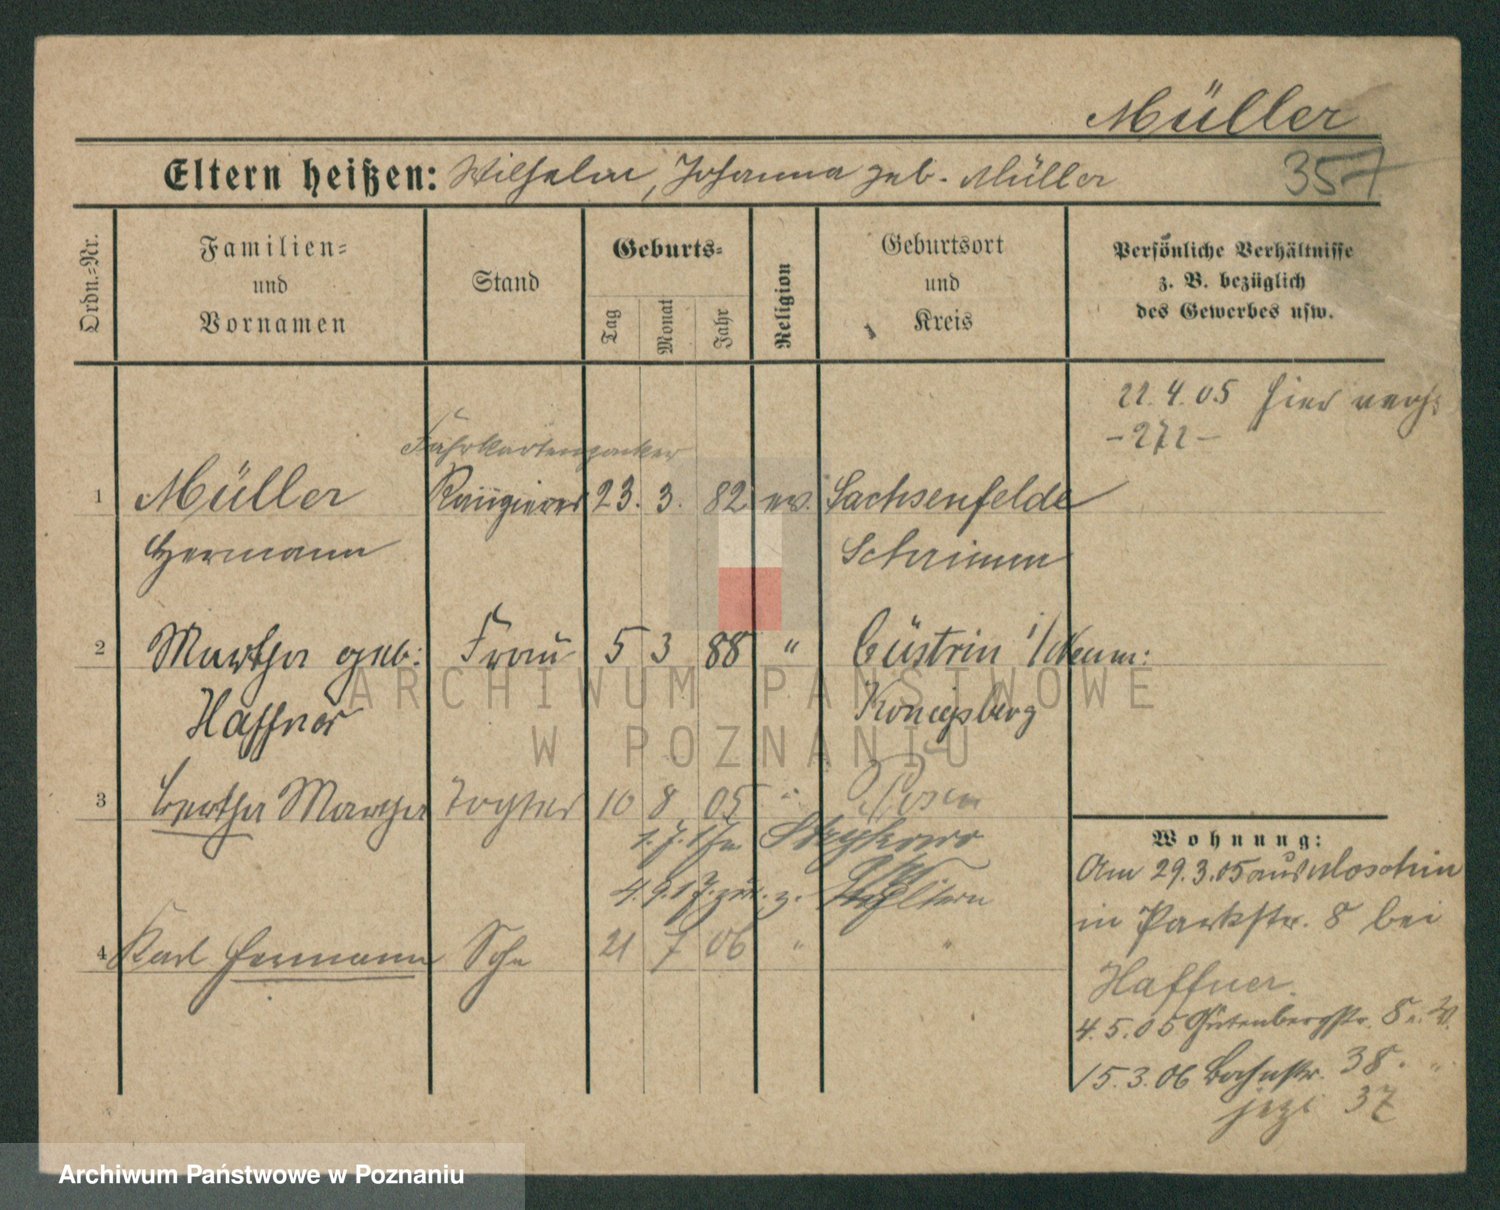 Müller
Eltern heißen: Wilhelm, Johanna geb. Müller
357
Ordn.=Nr.
Familien=
und
Vornamen
Stand
Geburts=
Tag
Monat
Jahr
Religion
Geburtsort
und
Kreis
Persönliche Verhältnisse
z. B. bezüglich
des Gewerbes usw.
22.4.05 hier
-272-
Fahrkarten
1 Müller Rangierer 23. 3. 82 ev. Sachsenfelde
Hermann Schrimm
2 Martha geb: Frau 5 3 88 " Cüstrin i/Neum:
Haffner Königsberg
3 Bertha Martha Tochter 10 8 05 " Posen
1.7.
4.9.17. z. Eltern
4 Karl Hermann Sohn 21 7 06 " "
Wohnung:
Am 29.3.05 aus Moschin
in Parkstr. 8 bei
Haffner.
4.5.05 Gutenbergstr. 8
15.3.06 Bahnstr. 38. "
jezt 37
ARCHIWUM PAŃSTWOWE
W POZNANIU
Archiwum Państwowe w Poznaniu